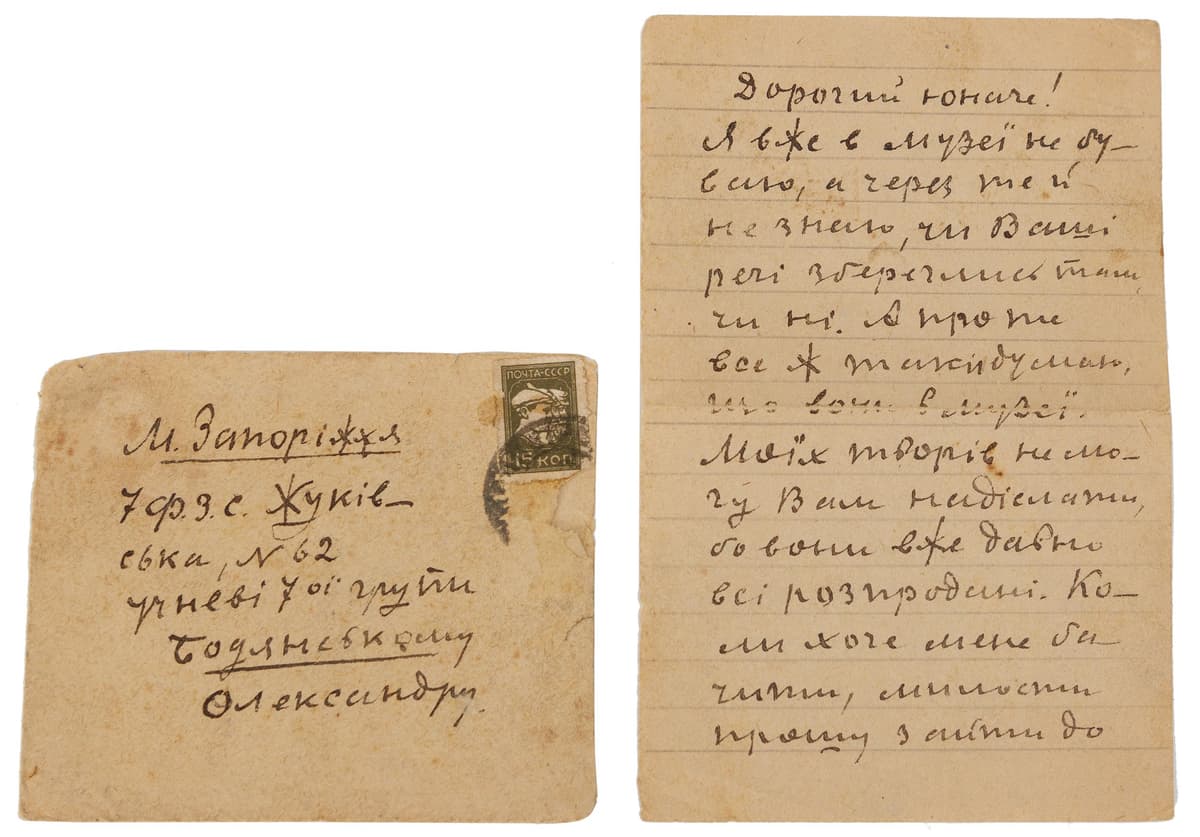 ПОЧТА-СССР
15 КОП
М. Запоріжжя
7 Ф.З.С. Жуків-
ська, N 62
учневі 7ої групи
Бодянському
Олександру.
Дорогий юначе!
Я вже в музеї не бу-
ваю, а через те й
не знаю, чи Ваші
речі збереглись там,
чи ні. А проте
все ж таки думаю,
що вони в музеї.
Моїх творів не мо-
жу Вам надіслати,
бо вони вже давно
всі розпродані. Ко-
ли хоче мене ба
чити, милости
прошу зайти до